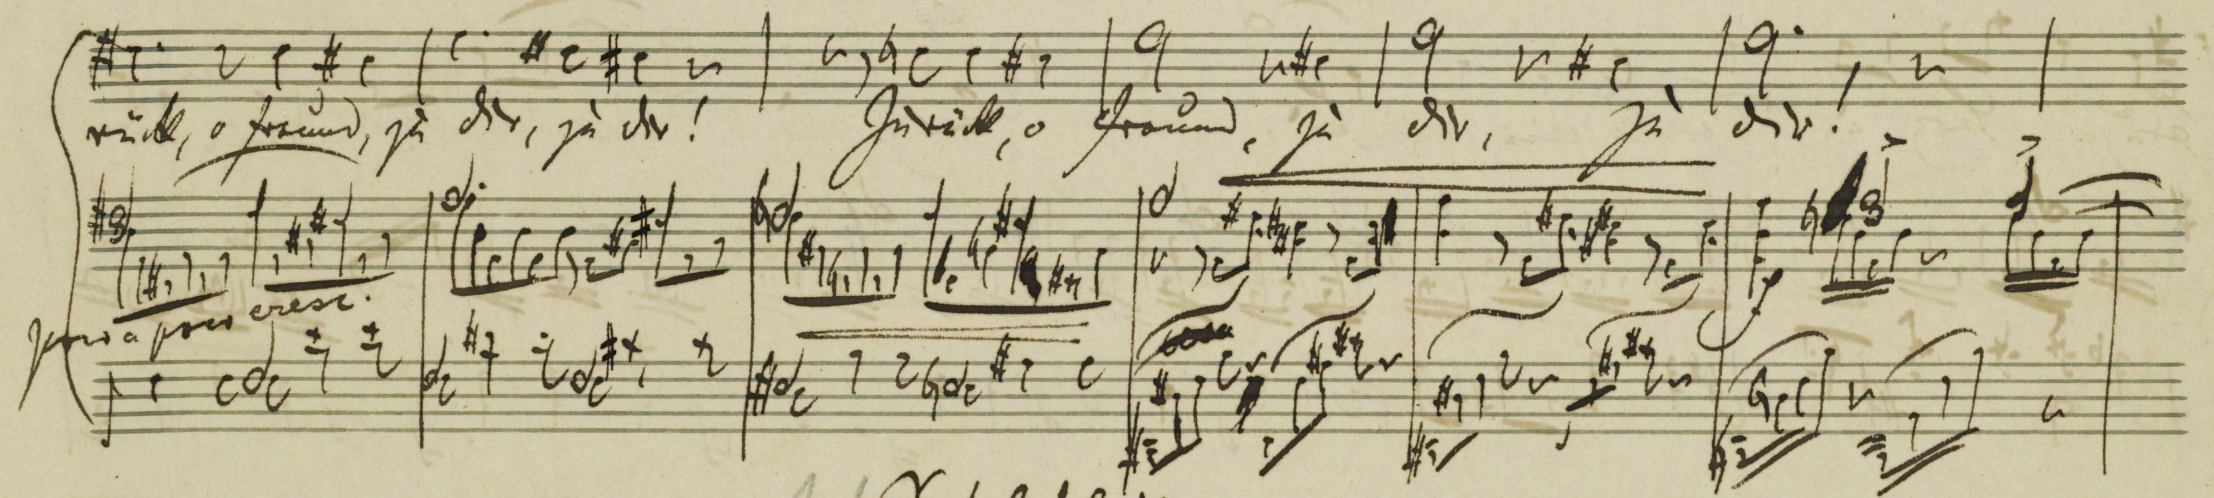 rück, o Freund, zu dir, zu dir! Zurück, o Freund, zu dir, zu dir!
poco a poco cresc.